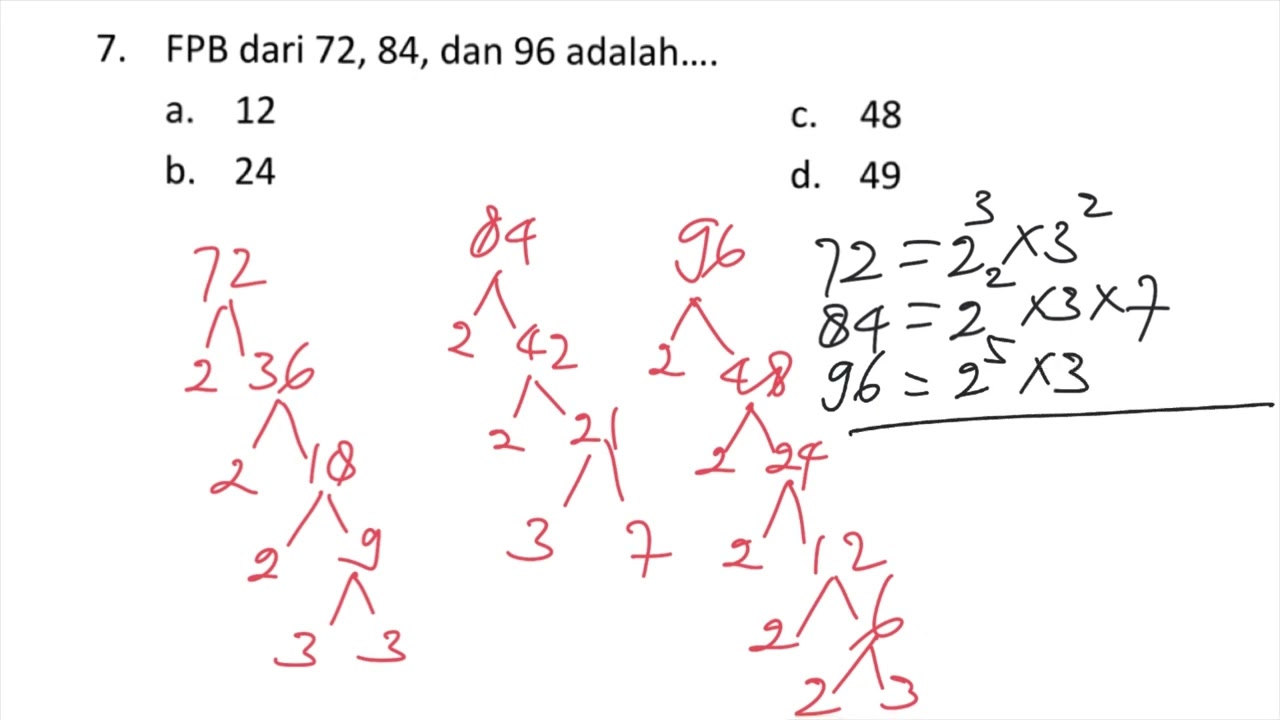 7. FPB dari 72, 84, dan 96 adalah....
a. 12
b. 24
c. 48
d. 49
72
2 36
2 18
2 9
3 3
84
2 42
2 21
3 7
96
2 48
2 24
2 12
2 6
2 3
72 = 2³ × 3²
84 = 2² × 3 × 7
96 = 2⁵ × 3